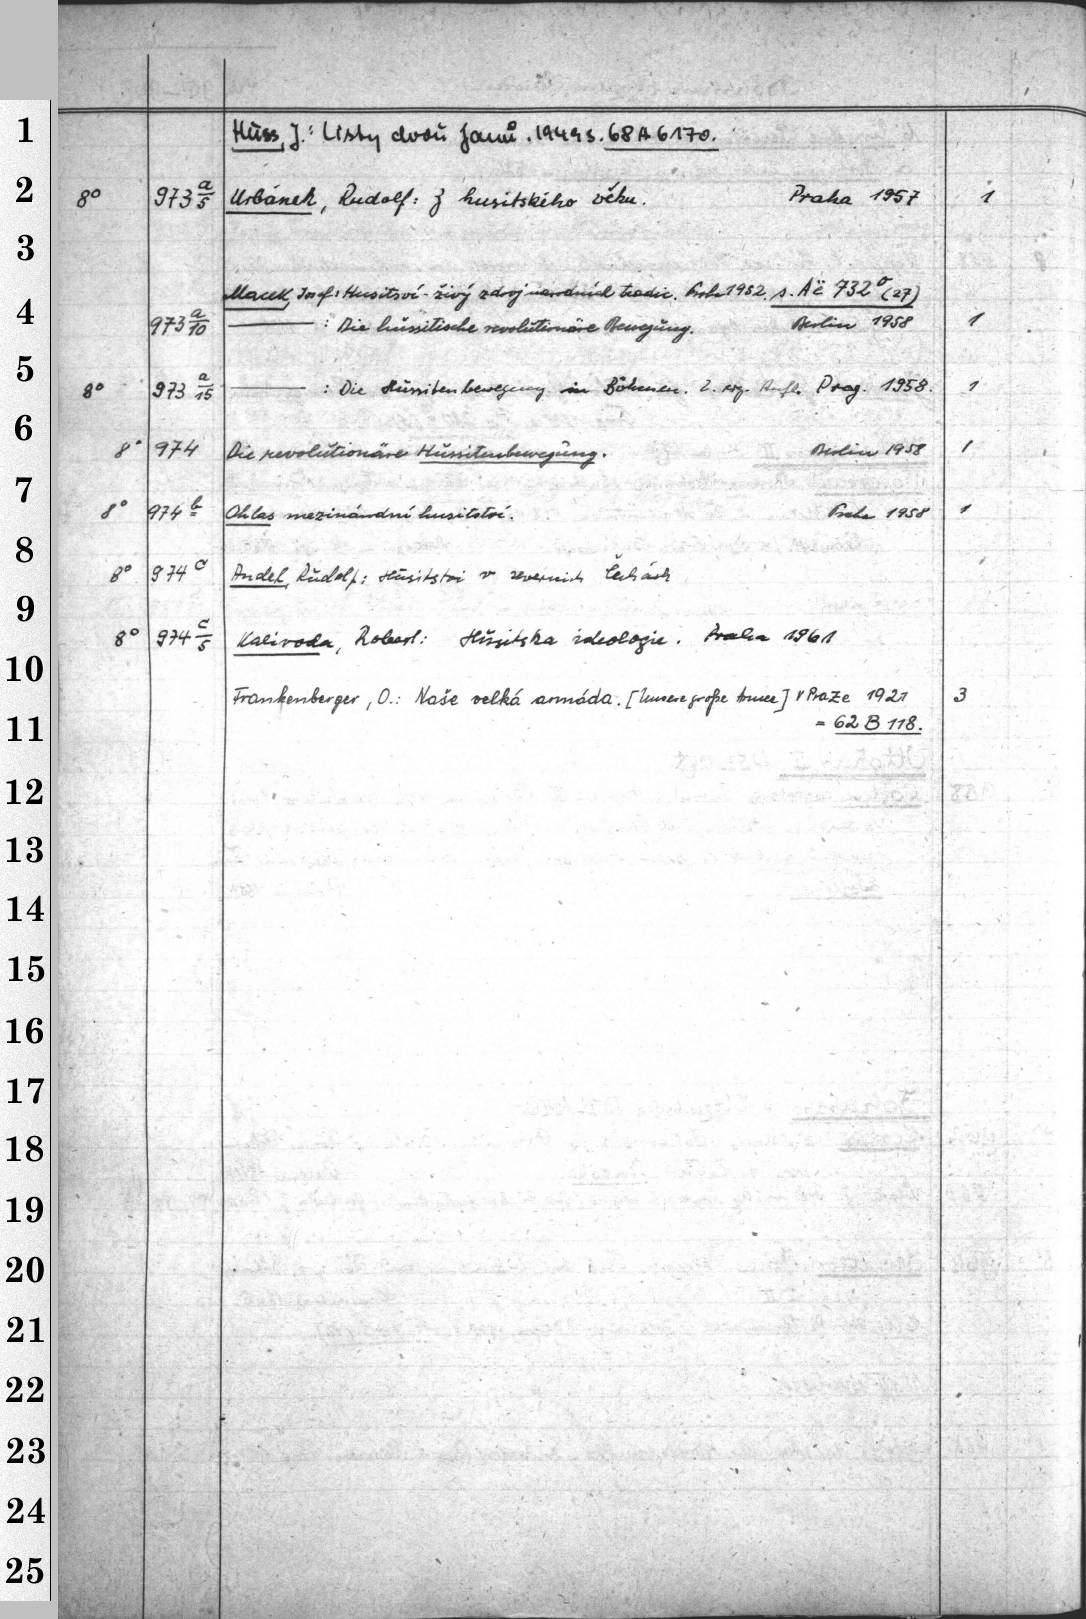 1
Huss, J.: Listy dvou Janů. 1949 s. 68 A 6170.
2
8° 973 a/5 Urbánek, Rudolf: Z husitského věku. Praha 1957 1
3
Macek, Josef: Husitsví - živý zdroj narodnich tradic. Praha 1952. s. Ač 732° (27)
4
973 a/10 ——— : Die hussitische revolutionäre Bewegung. Berlin 1958 1
5
8° 973 a/15 ——— : Die Hussitenbewegung in Böhmen. 2. erg. Aufl. Prag. 1958. 1
6
8° 974 Die revolutionäre Hussitenbewegung. Berlin 1958 1
7
8° 974 b Ohlas mezinárodní husitství. Praha 1958 1
8
8° 974 c Andel, Rudolf: Husitstvi v severnich Čechách
9
8° 974 c/5 Kalivoda, Robert: Husitska ideologie. Praha 1961
10
Frankenberger, O.: Naše velká armáda. [Unsere große Armee] V Praze 1921 3
11
= 62 B 118.
12
13
14
15
16
17
18
19
20
21
22
23
24
25